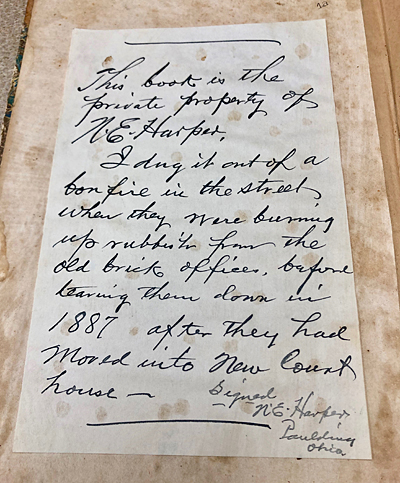 This book is the
private property of
N.E. Harper.
I dug it out of a
bonfire in the street
when they were burning
up rubbish from the
old brick offices, before
tearing them down in
1887 after they had
moved into New Court
house —
Signed
N.E. Harper
Paulding
Ohio